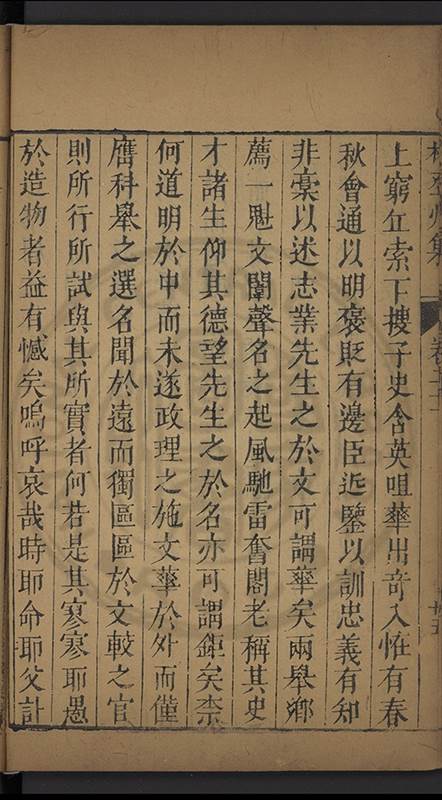 上窮丘索下搜子史含英咀華出奇入恠有春
秋會通以明褒貶有邊臣近鑒以訓忠義有知
非稾以述志業先生之於文可謂華矣兩舉鄉
薦一魁文闈聲名之起風馳雷奮閣老稱其史
才諸生仰其德望先生之於名亦可謂鉅矣柰
何道明於中而未遂政理之施文華於外而僅
膺科舉之選名聞於遠而獨區區於文較之官
則所行所試與其所實者何若是其寥寥耶愚
於造物者益有憾矣嗚呼哀哉時耶命耶父計